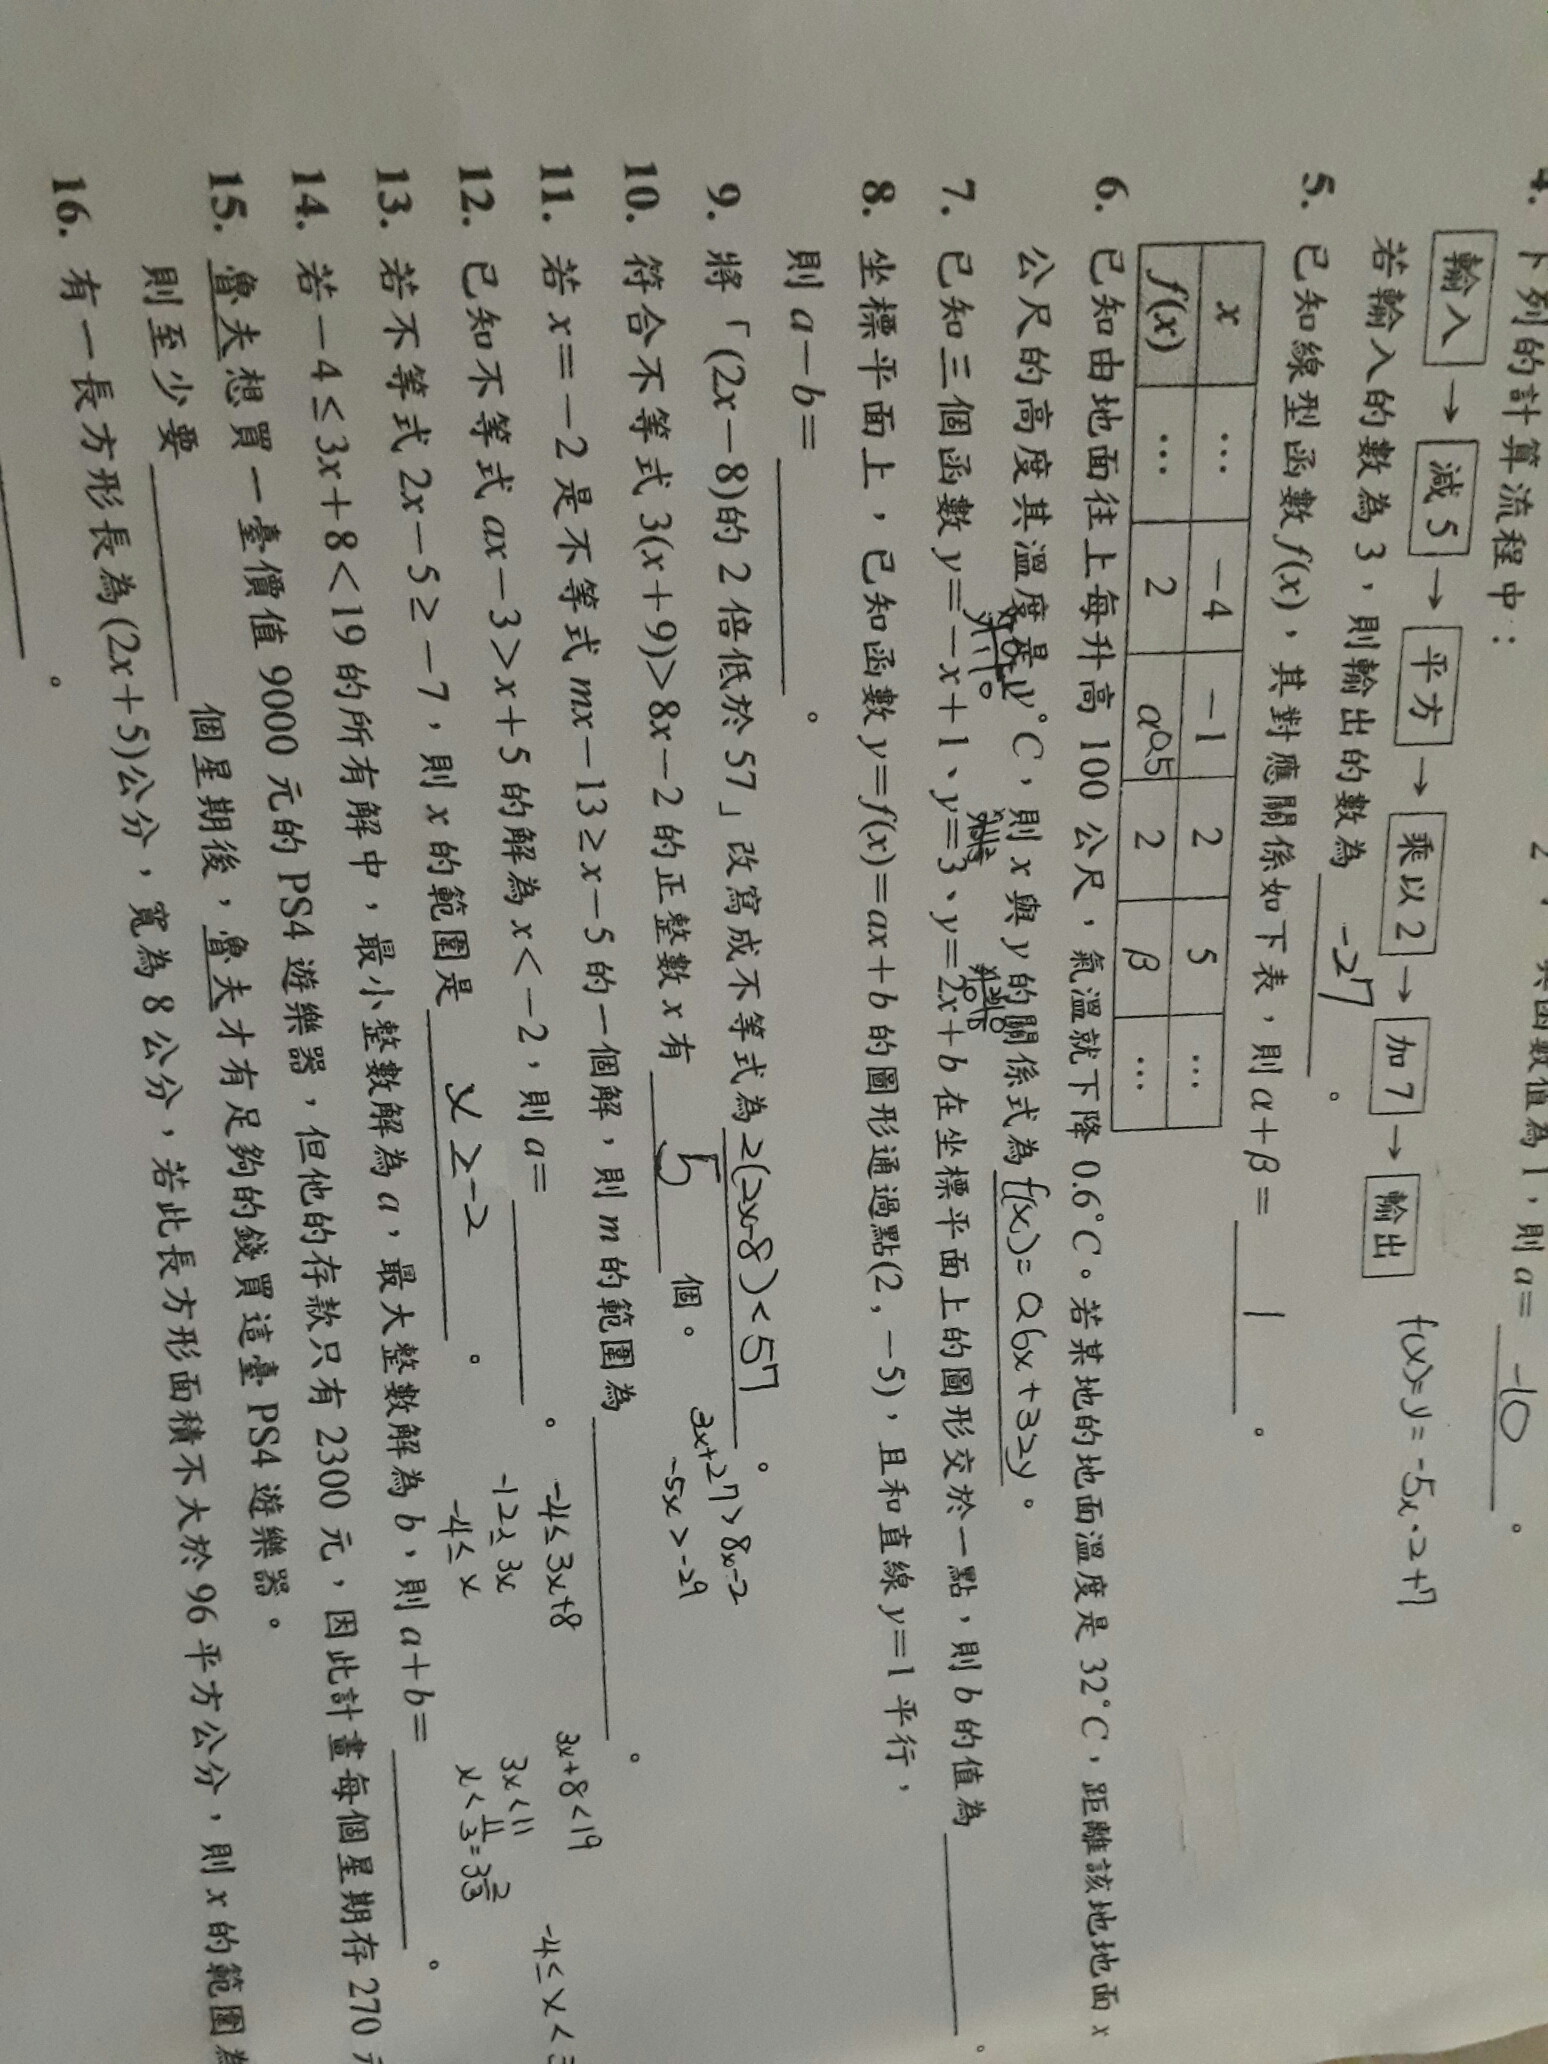 下列的計算流程中：
輸入→減5→平方→乘以2→加7→輸出
f(x)=y=-5x·2+7
若輸入的數為3，則輸出的數為 -27 。
其函數值為1，則a= -10 。
5. 已知線型函數f(x)，其對應關係如下表，則α+β= 1 。
x … -4 -1 2 5 …
f(x) … 2 α 0.5 2 β …
6. 已知由地面往上每升高100公尺，氣溫就下降0.6°C。若某地的地面溫度是32°C，距離該地地面x
公尺的高度其溫度是y°C，則x與y的關係式為 f(x)=0.6x+32y。
7. 已知三個函數y=-x+1、y=3、y=2x+b在坐標平面上的圖形交於一點，則b的值為 。
8. 坐標平面上，已知函數y=f(x)=ax+b的圖形通過點(2,-5)，且和直線y=1平行，
則a-b= 。
9. 將「(2x-8)的2倍低於57」改寫成不等式為 2(2x-8)<57 。
10. 符合不等式3(x+9)>8x-2的正整數x有 5 個。
3x+27>8x-2
-5x>-29
11. 若x=-2是不等式mx-13≥x-5的一個解，則m的範圍為 。
12. 已知不等式ax-3>x+5的解為x<-2，則a= 。
-4≤3x+8
-12≤3x
-4≤x
3x+8<19
3x<11
x<11/3=3 2/3
-4≤x<3
13. 若不等式2x-5≥-7，則x的範圍是 x≥-2 。
14. 若-4≤3x+8<19的所有解中，最小整數解為a，最大整數解為b，則a+b= 。
15. 魯夫想買一臺價值9000元的PS4遊樂器，但他的存款只有2300元，因此計畫每個星期存270元
則至少要 個星期後，魯夫才有足夠的錢買這臺PS4遊樂器。
16. 有一長方形長為(2x+5)公分，寬為8公分，若此長方形面積不大於96平方公分，則x的範圍為
。